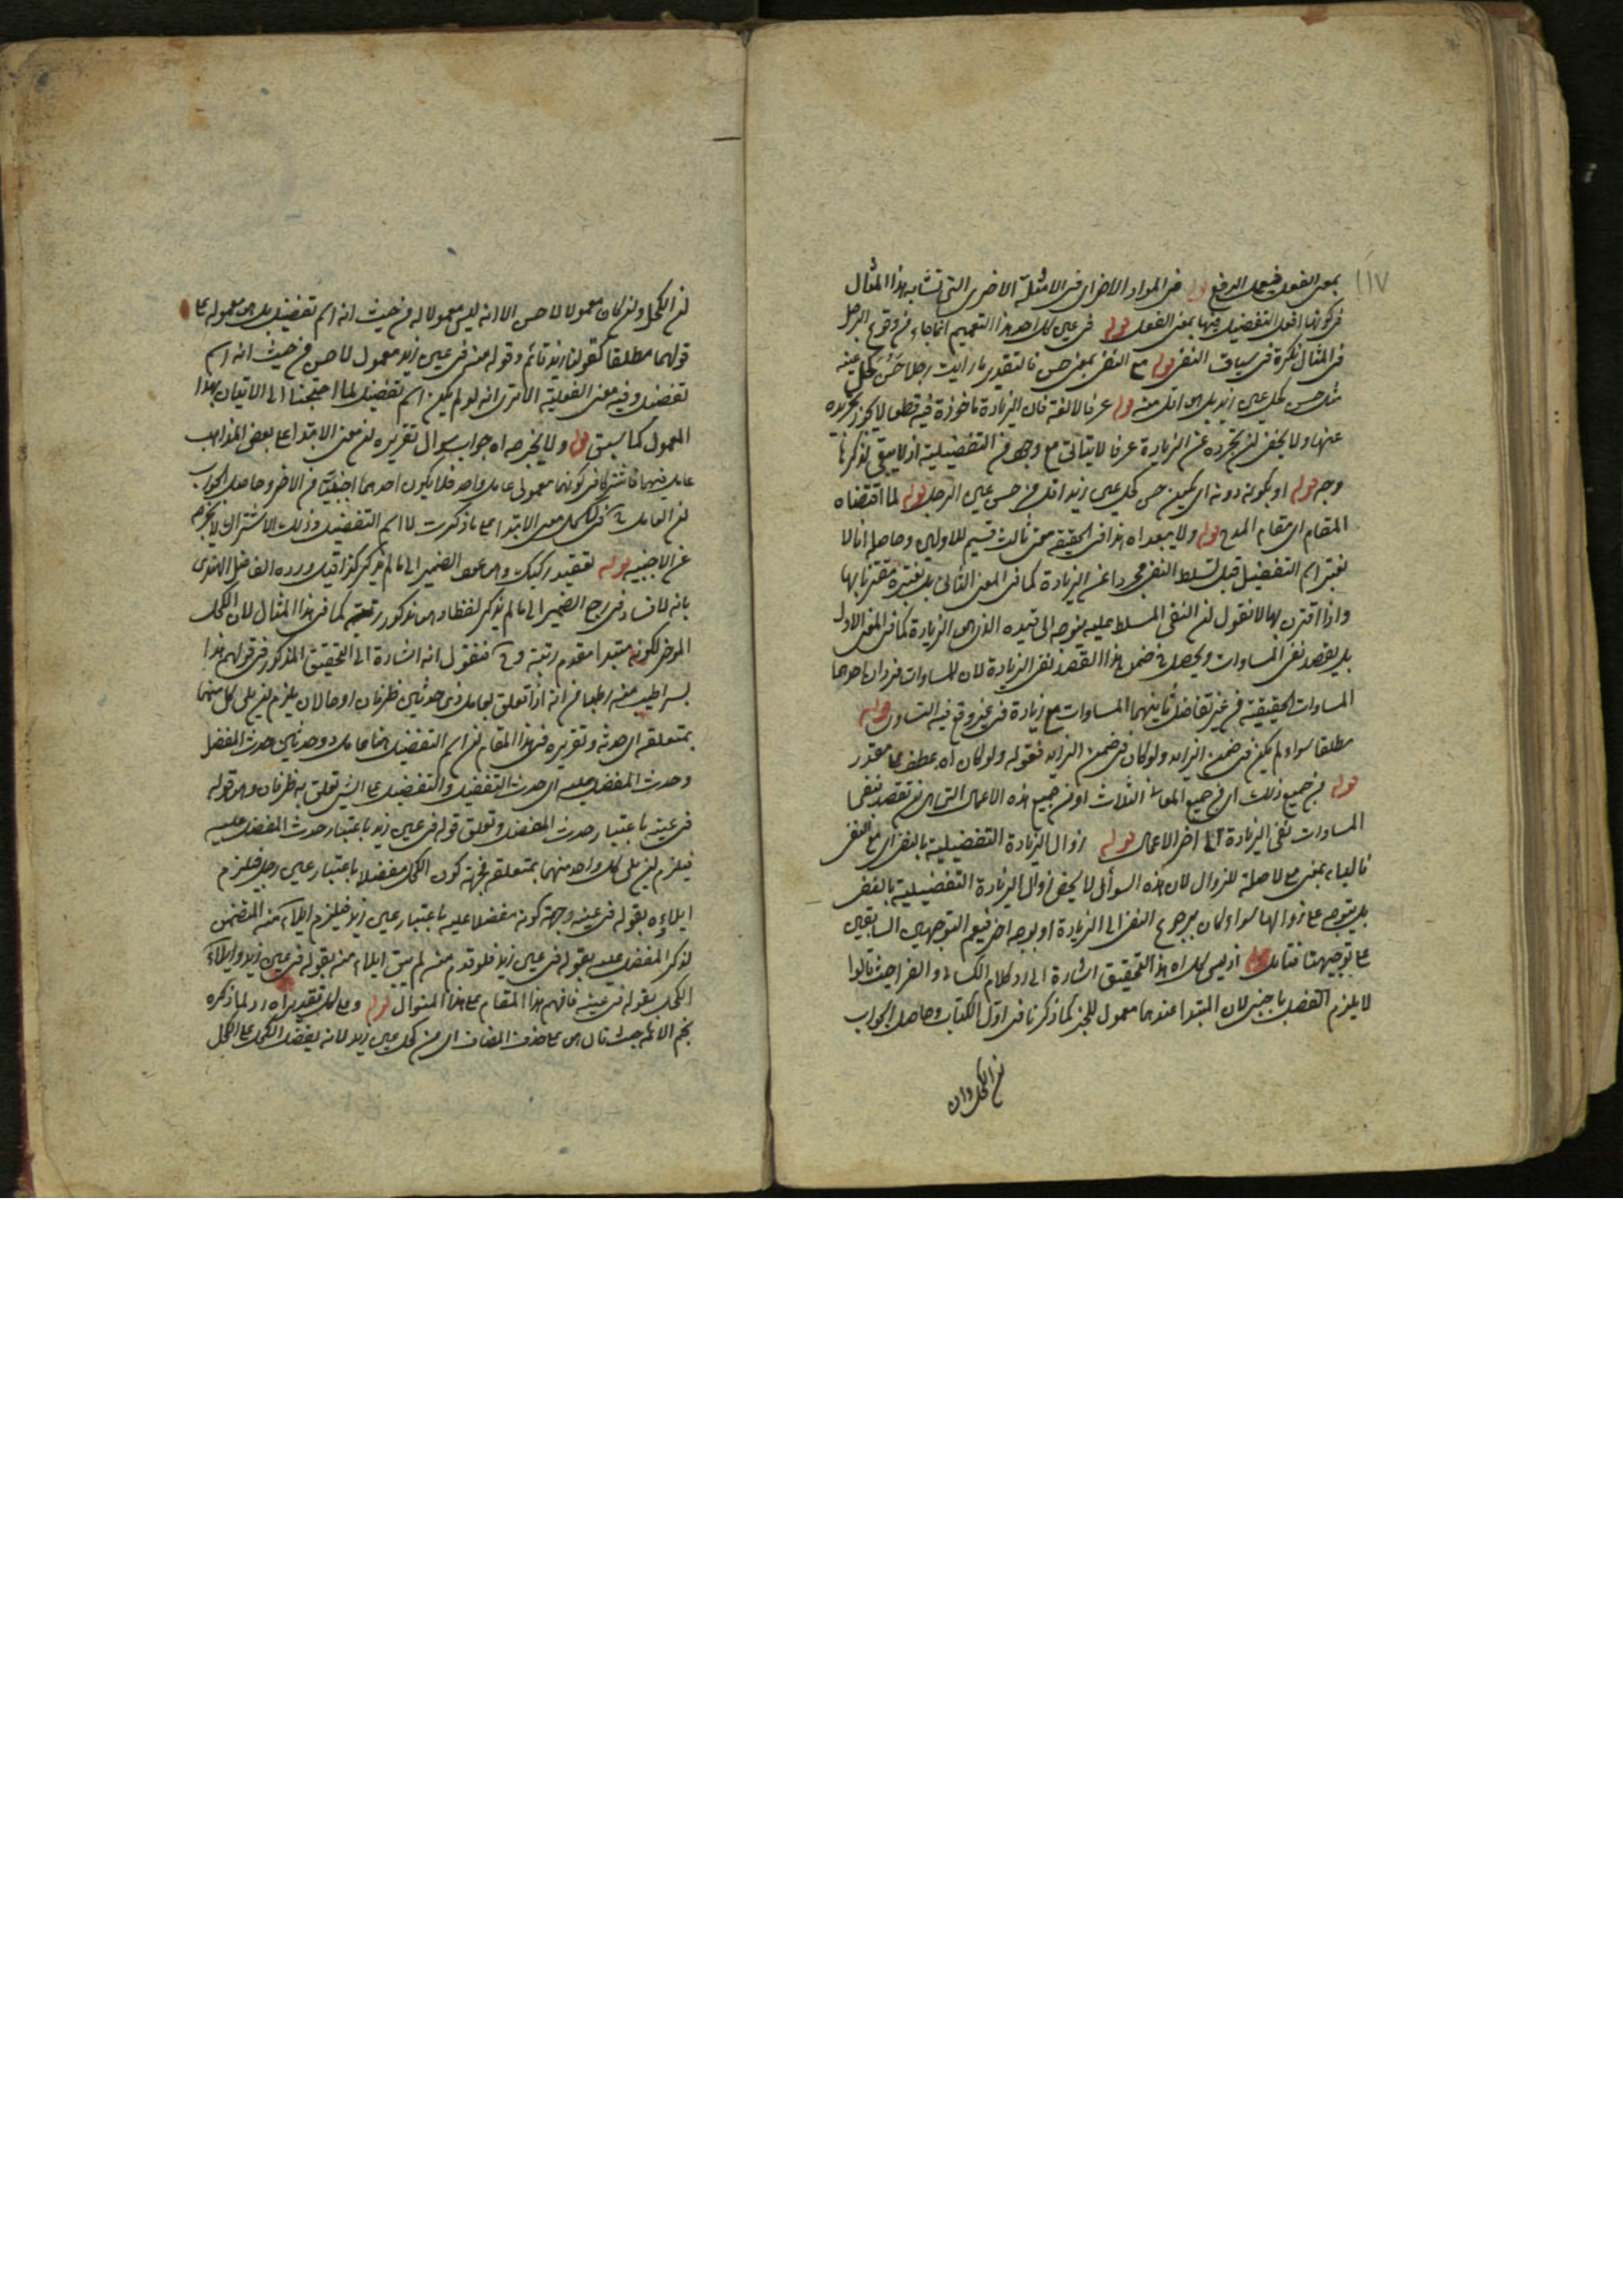 ١١٧
بمعنى الفعل فيعمل الرفع قوله في المواد الاخر اى في الامثلة الاخرى التى تشابه هذا المثال
في كون افعل التفضيل فيها بمعنى الفعل قوله في عين كل احد هذا التعميم انما جاء من وقوع الرجل
في المثال نكرة في سياق النفى قوله مع النفى بمعنى حسن فالتقدير ما رايت رجلا حسن كحل عينه
مثل حسن كحل عين زيد بل هو اقل منه قوله عرفا لا لغة فان الزيادة ماخوذة فيه قطعا لا يجوز تجريده
عنها ولا يخفى ان تجرده عن الزيادة عرفا لا يتاتى مع وجود من التفضيلية اذ لا يبقى لذكرها
وجه قوله او بكونه دونه اى يكون حسن كحل عين زيد اقل من حسن عين الرجل قوله لما اقتضاه
المقام اى مقام المدح قوله ولا يبعد اه هذا في الحقيقة معنى ثالث قسيم للاولين وحاصله انا لا
نعتبر اسم التفضيل قبل تسلط النفى مجردا عن الزيادة كما في المعنى الثانى بل نعتبره مقترنا بها
واذا اقترن بها لا نقول ان النفى المسلط عليه يتوجه الى قيده الذى هو الزيادة كما في المعنى الاول
بل يقصد نفى المساوات ويحصل في ضمن هذا القصد نفى الزيادة لان للمساوات فردان احدهما
المساوات الحقيقية من غير تفاضل ثانيهما المساوات مع زيادة في غير وقع فيه التساوى قوله
مطلقا سواء لم يكن في ضمن الزايد ولو كان في ضمن الزايد فقوله ولو كان اه عطف على مقدر
قوله من جميع ذلك اى من جميع المعانى الثلاث او من جميع هذه الاعمال التى هى نقصد نفى
المساوات نفى الزيادة الى اخر الاعمال قوله زوال الزيادة التفضيلية بالنفى اى مع النفى
فالباء بمعنى مع لا صلة للزوال لان هذه السؤال لا يخص زوال الزيادة التفضيلية بالنفى
بل يتوجه على زوالها سواء كان برجوع النفى الى الزيادة او بوجه اخر فيعم التوجهين السابقين
على توجيهنا فتامل قوله اذ ليس كل اه هذا التحقيق اشارة الى رد كلام الكسائى والفرا حيث قالوا
لا يلزم الفصل باجنبى لان المبتدا عندهما معمول للخبر كما ذكرنا في اول الكتاب وحاصل الجواب
ان الكحل وان
ان الكحل وان كان معمولا لاحسن الا انه ليس معمولا له من حيث انه اسم تفضيل بل هو معموله على
قولهما مطلقا كقولنا زيد قائم وقوله منه في عين زيد معمول لاحسن من حيث انه اسم
تفضيل وفيه معنى الفعلية الا ترى انه لو لم يكن اسم تفضيل لما احتجنا الى الاتيان بهذا
المعمول كما سبق قوله ولا يخرجه اه جواب سوال تقريره ان معنى الابتدا على بعض المذاهب
عامل فيهما فاشتركا في كونهما معمولى عامل واحد فلا يكون احدهما اجنبيا من الاخر وحاصل الجواب
ان العامل في الكحل معنى الابتدا على ما ذكرت لا اسم التفضيل وذلك الاشتراك لا يخرجه
عن الاجنبيه قوله تعقيد ركيك وهو عود الضمير الى ما لم يذكر كذا قيل ورده الفاضل الهندى
بانه لا فساد في رجع الضمير الى ما لم يذكر لفظا وهو مذكور رتبته كما في هذا المثال لان الكحل
المؤخر لكونه مبتدا مقدم رتبة فنقول انه اشارة الى التحقيق المذكور في قولهم هذا
بسرا اطيب منه رطبا من انه اذا تعلق بعامل ذى حدثين ظرفان او حالان يلزم ان يلى كل منهما
بمتعلقه اى حدثه وتقريره في هذا المقام ان اسم التفضيل هنا عامل ذو حدثين حدث المفضل
وحدث المفضل عليه اى حدث التفضيل والتفضيل على الشى تعلق به ظرفان وهو قوله
في عينه باعتبار حدث المفضل وتعلق قوله في عين زيد باعتبار حدث المفضل عليه
فيلزم ان يلى كل واحد منهما بمتعلقه فجهة كون الكحل مفضلا باعتبار عين رجل فيلزم
ايلاؤه بقوله في عينه وجهة كونه مفضلا عليه باعتبار عين زيد فيلزم ايلاء منه المتضمن
لذكر المفضل عليه بقوله في عين زيد فلو قدم منه لم يبق ايلاء منه بقوله في عين زيد وايلاء
الكحل بقوله في عينه فافهم هذا المقام على هذا المنوال قوله وعلى كل تقدير اه رد لما ذكره
نجم الائمه حيث قال هو على حذف المضاف اى من كحل عين زيد لانه يفضل الكحل على الكحل